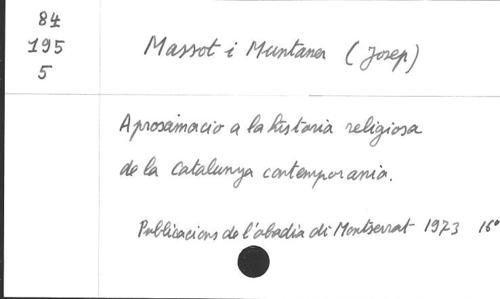 84
195
5
Massot i Muntaner (Josep)
Aproximacio a la historia religiosa
de la Catalunya contemporania.
Publicacions de l'abadia di Montserrat 1973 16°